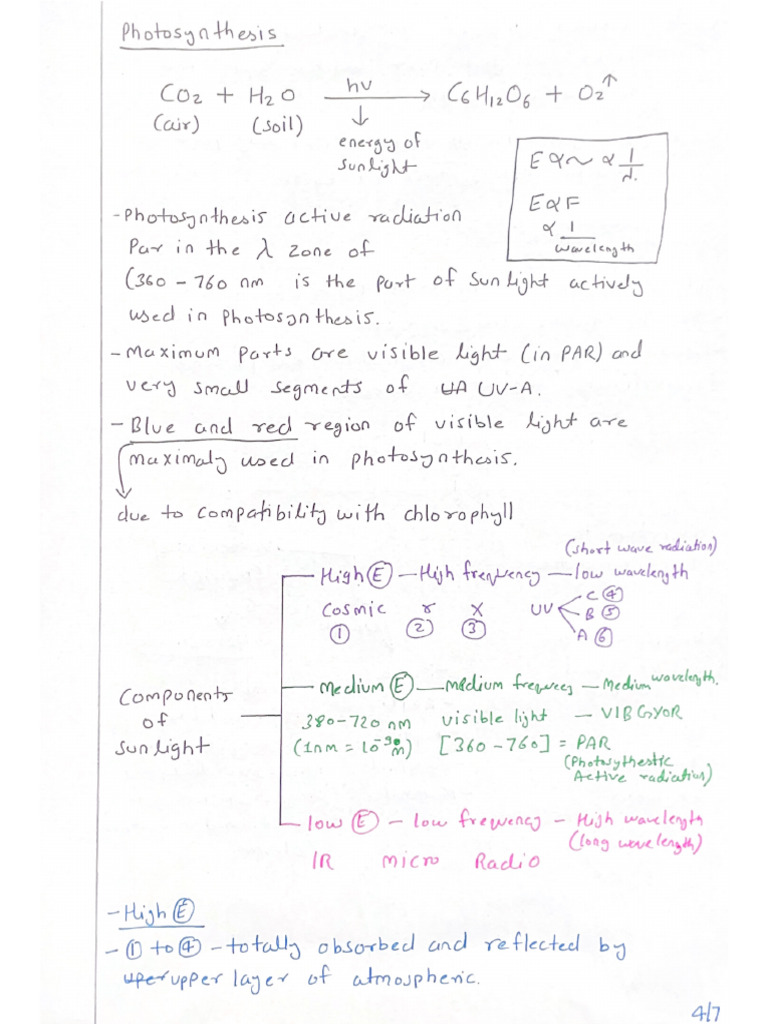 Photosynthesis
CO2 + H2O hν → C6H12O6 + O2↑
(air) (soil) ↓
energy of
sunlight
E ∝ ~ ∝ 1/λ.
E ∝ F
∝ 1/wavelength
- Photosynthesis active radiation
Par in the λ zone of
(360 - 760 nm is the part of sunlight actively
used in photosynthesis.
- Maximum parts are visible light (in PAR) and
very small segments of UA UV-A.
- Blue and red region of visible light are
maximaly used in photosynthesis.
due to compatibility with chlorophyll
(short wave radiation)
High E - High frequency - low wavelength
Cosmic r X UV C 4
1 2 3 B 5
A 6
Components
of
sunlight
Medium E - medium frequecy - Medium wavelength.
380-720 nm visible light - VIBGYOR
(1nm = 10-9m) [360 - 760] = PAR
(Photosythestic
Active radiation)
low E - low frequency - High wavelength
(long wavelength)
IR micro Radio
- High E
- 1 to 4 - totally absorbed and reflected by
uper upper layer of atmospheric.
4/7